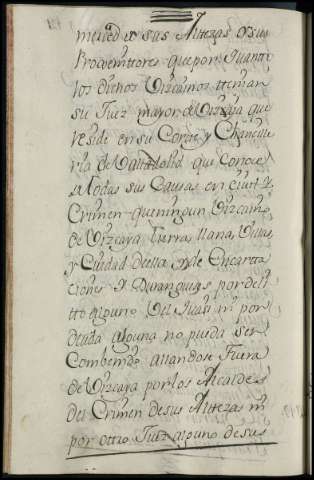 merced de sus Altezas o sus
Proxenittores que por Quanto
los dichos Vizcainos ttenian
su Juez mayor de Vizcaia que
reside en su Cortte y Chancille
ria de Valladolid que Conoce
a todas sus Causas en civil y
Crimen que ningun Vizcaino
de Vizcaya Tierra llana, Villas,
y Ciudad de ella y de Encarta
ciones y Durangueses por deli
tto alguno del Juavi ni por
deuda alguna no pueda ser
Combenido allandose Fuera
de Vizcaya por los Alcaldes
del Crimen de sus Alttezas ni
por ottro Juez alguno de sus